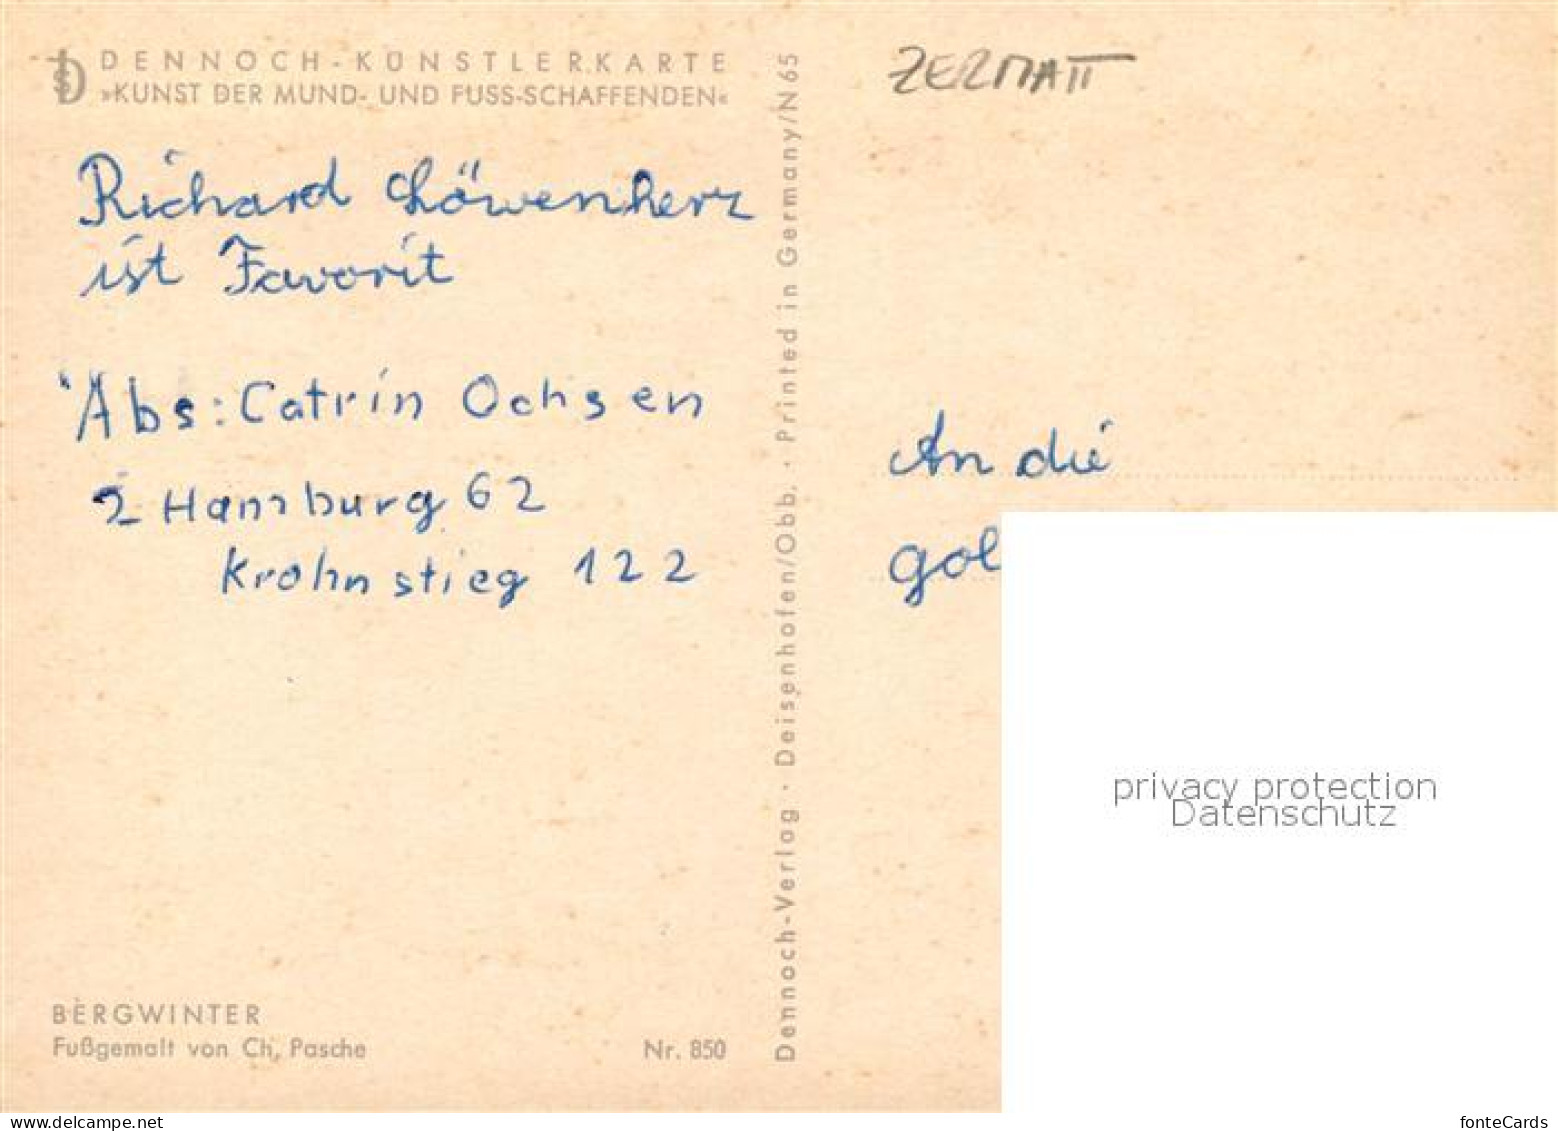 DENNOCH-KÜNSTLERKARTE
»KUNST DER MUND- UND FUSS-SCHAFFENDEN«
Richard Löwenherz
ist Favorit
Abs: Catrin Ochsen
2 Hamburg 62
Krohnstieg 122
BERGWINTER
Fußgemalt von Ch, Pasche
Nr. 850
Dennoch-Verlag · Deisenhofen/Obb. · Printed in Germany/N 65
ZERMATT
An die
gol
privacy protection
Datenschutz
www.delcampe.net
fonteCards